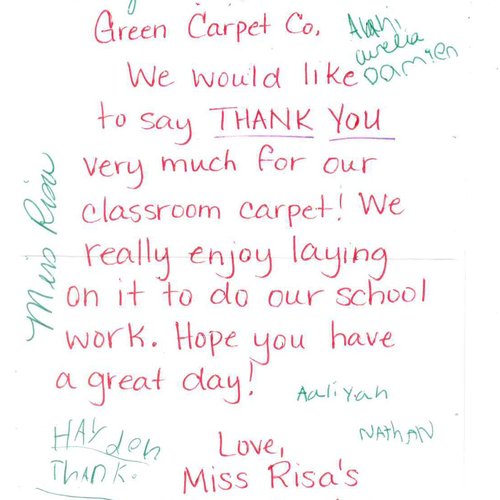 Green Carpet Co.
Alah,
aurelia
Damien
We would like
to say THANK YOU
very much for our
classroom carpet! We
really enjoy laying
on it to do our school
work. Hope you have
a great day!
Miss Risa
Aaliyah
NATHAN
HAYden
THANK.
Love,
Miss Risa's